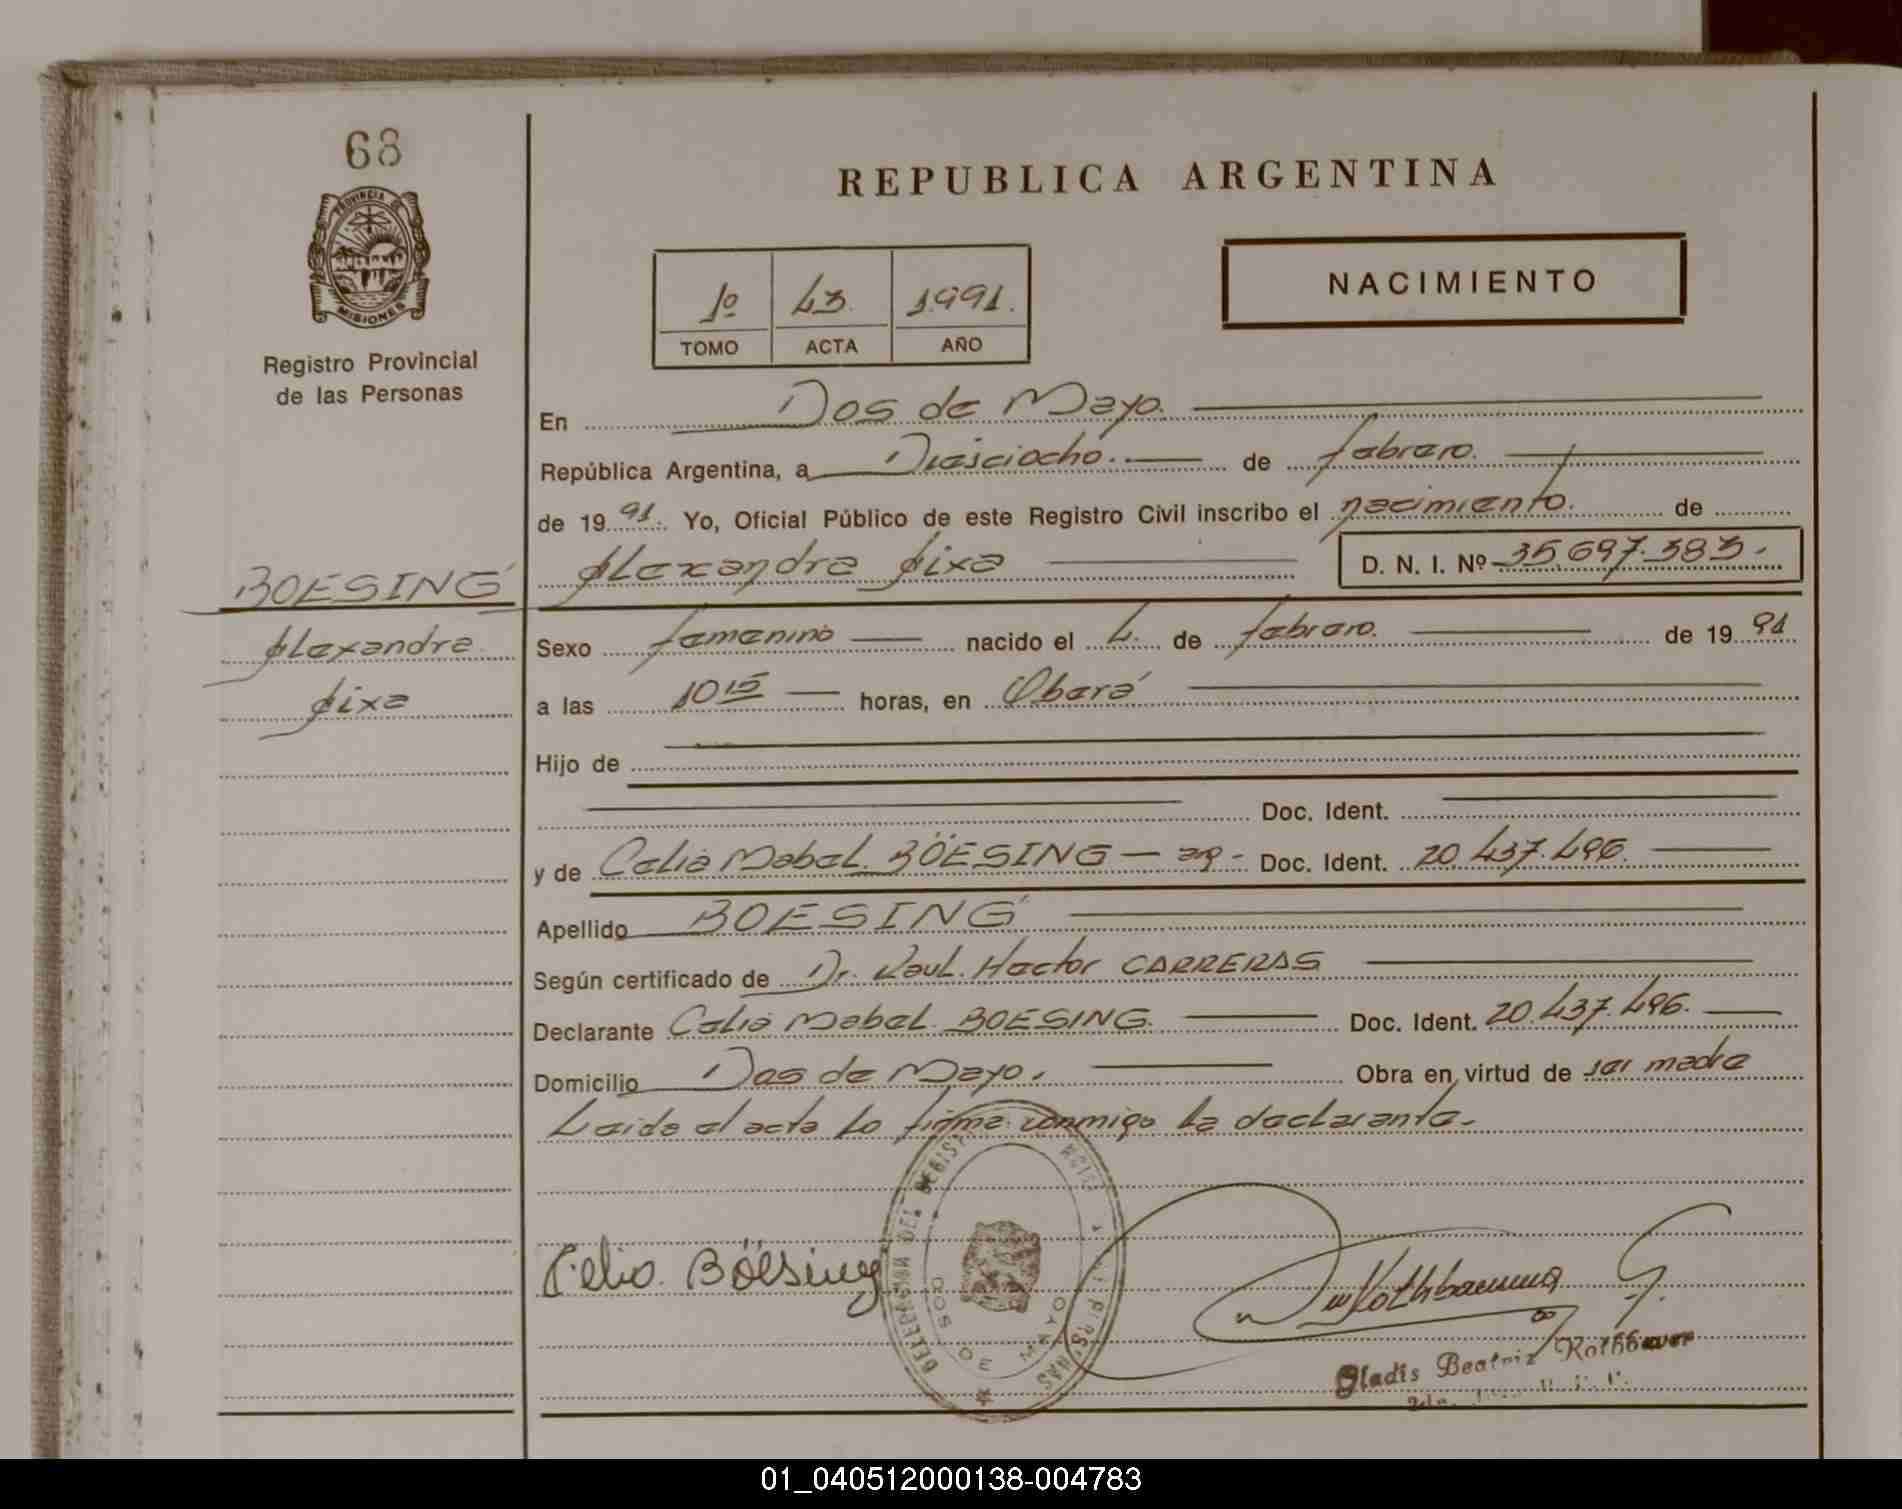 68
PROVINCIA DE
MISIONES
Registro Provincial
de las Personas
BOESING
Alexandra
Aixa
REPUBLICA ARGENTINA
1º 43. 1.991.
TOMO ACTA AÑO
NACIMIENTO
En Dos de Mayo.
República Argentina, a Dieciocho. de febrero.
de 19 91. Yo, Oficial Público de este Registro Civil inscribo el nacimiento. de
Alexandra Aixa D. N. I. Nº 35.697.383.
Sexo femenino nacido el 4. de febrero. de 19 91
a las 10 15 horas, en Oberá
Hijo de
Doc. Ident.
y de Celia Mabel. BÖESING - arg - Doc. Ident. 20.437.496.
Apellido BOESING
Según certificado de Dr. Raul. Hector CARRERAS
Declarante Celia Mabel. BOESING. Doc. Ident. 20.437.496.
Domicilio Dos de Mayo. Obra en virtud de ser madre
Leida el acta lo firma conmigo la declarante.
DELEGACION DEL REGIST
DOS DE MAYO
Celia. Böesing
Gladis Beatriz Rothbauer
01_040512000138-004783